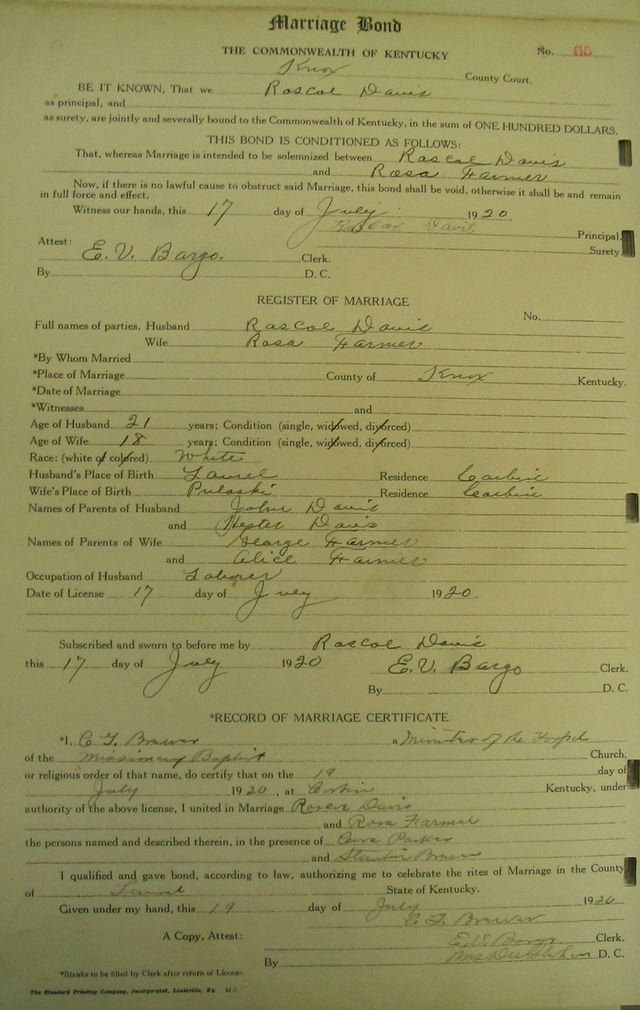 Marriage Bond
THE COMMONWEALTH OF KENTUCKY No. 65
Knox County Court.
BE IT KNOWN, That we Roscoe Davis
as principal, and
as surety, are jointly and severally bound to the Commonwealth of Kentucky, in the sum of ONE HUNDRED DOLLARS.
THIS BOND IS CONDITIONED AS FOLLOWS:
That, whereas Marriage is intended to be solemnized between Roscoe Davis
and Rosa Farmer
Now, if there is no lawful cause to obstruct said Marriage, this bond shall be void, otherwise it shall be and remain
in full force and effect.
Witness our hands, this 17 day of July 1920.
Roscoe Davis Principal.
Surety.
Attest: E. V. Bargo. Clerk.
By D. C.
REGISTER OF MARRIAGE
No.
Full names of parties, Husband Roscoe Davis
Wife Rosa Farmer
*By Whom Married
*Place of Marriage County of Knox Kentucky.
*Date of Marriage
*Witnesses and
Age of Husband 21 years; Condition (single, widowed, divorced)
Age of Wife 18 years; Condition (single, widowed, divorced)
Race: (white or colored) White
Husband's Place of Birth Laurel Residence Corbin
Wife's Place of Birth Pulaski Residence Corbin
Names of Parents of Husband John Davis
and Hester Davis
Names of Parents of Wife George Farmer
and Alice Farmer
Occupation of Husband Laborer
Date of License 17 day of July 1920.
Subscribed and sworn to before me by Roscoe Davis
this 17 day of July 1920 E. V. Bargo Clerk.
By D. C.
*RECORD OF MARRIAGE CERTIFICATE
*I, C. T. Brewer a Minister of the Gospel
of the Missionary Baptist Church,
or religious order of that name, do certify that on the 19 day of
July 1920, at Corbin Kentucky, under
authority of the above license, I united in Marriage Roscoe Davis
and Rosa Farmer
the persons named and described therein, in the presence of Parker
and
I qualified and gave bond, according to law, authorizing me to celebrate the rites of Marriage in the County
of Laurel State of Kentucky.
Given under my hand, this 19 day of July 1920
C. T. Brewer
A Copy, Attest: E. V. Bargo Clerk.
By D. C.
*Blanks to be filled by Clerk after return of License.
The Standard Printing Company, Incorporated, Louisville, Ky. M-1